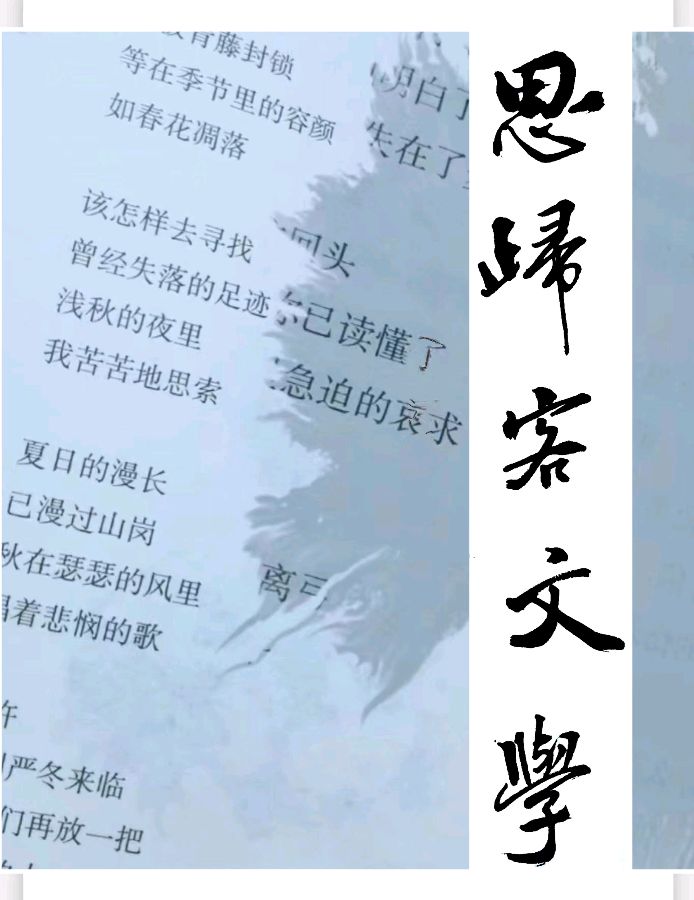 青藤封锁
等在季节里的容颜
如春花凋落
该怎样去寻找
曾经失落的足迹
浅秋的夜里
我苦苦地思索
夏日的漫长
已漫过山岗
秋在瑟瑟的风里
唱着悲悯的歌
严冬来临
们再放一把
明白了
失在了
回头
你已读懂了
急迫的哀求
离弓
思歸客文學